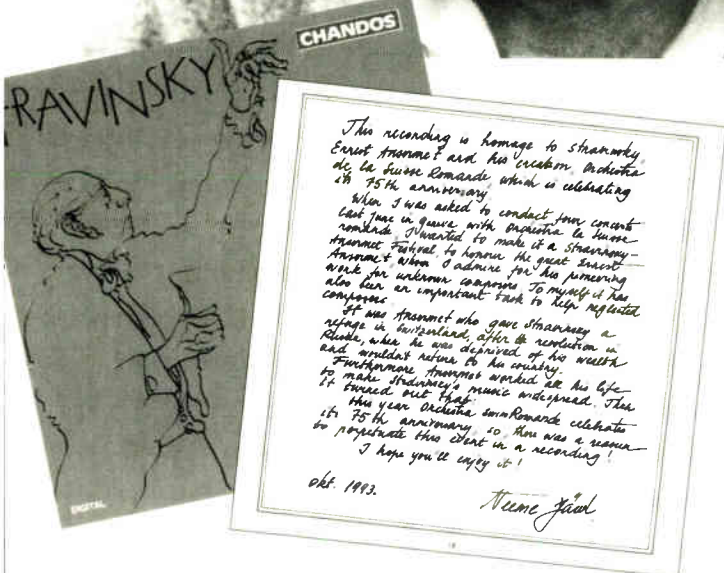 CHANDOS
RAVINSKY
This recording is homage to Stravinsky
Ernest Ansermet and his creation Orchestra
de la Suisse Romande which is celebrating
its 75th anniversary
When I was asked to conduct four concerts
last June in Geneva with Orchestra la Suisse
romande I wanted to make it a Stravinsky-
Ansermet Festival to honour the great Ernest
Ansermet whom I admire for his pioneering
work for unknown composers. To myself it has
also been an important task to help neglected
composers.
It was Ansermet who gave Stravinsky a
refuge in Switzerland, after the revolution in
Russia, when he was deprived of his wealth
and wouldn't return to his country.
Furthermore Ansermet worked all his life
to make Stravinsky's music widespread. Then
it turned out that
this year Orchestra Suisse Romande celebrates
its 75th anniversary so there was a reason
to perpetuate this event in a recording!
I hope you'll enjoy it!
okt. 1993.
Neeme Järvi
DIGITAL